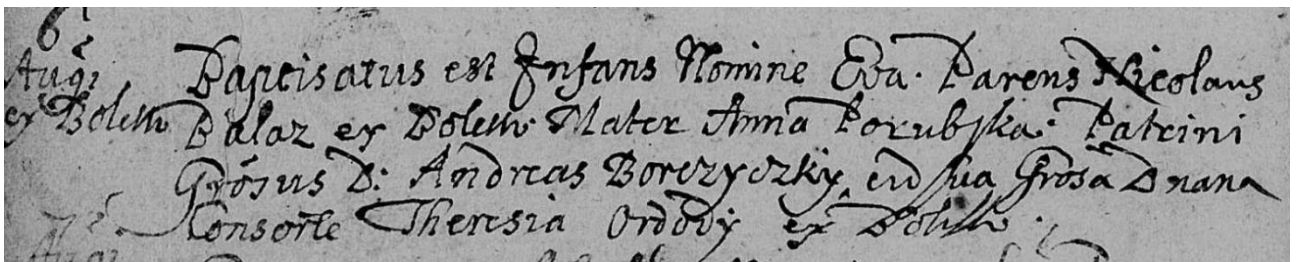 6ẽ
Aug: Baptisatus est Infans Nomine Eva. Parens Nicolaus
ex Boleso Balaz ex Boleso. Mater Anna Porubska. Patrini
Grosus D: Andreas Borczyczky, cu sua Grosa Dnana
7ẽ Consorte Theresia Ordody ex Boleso.